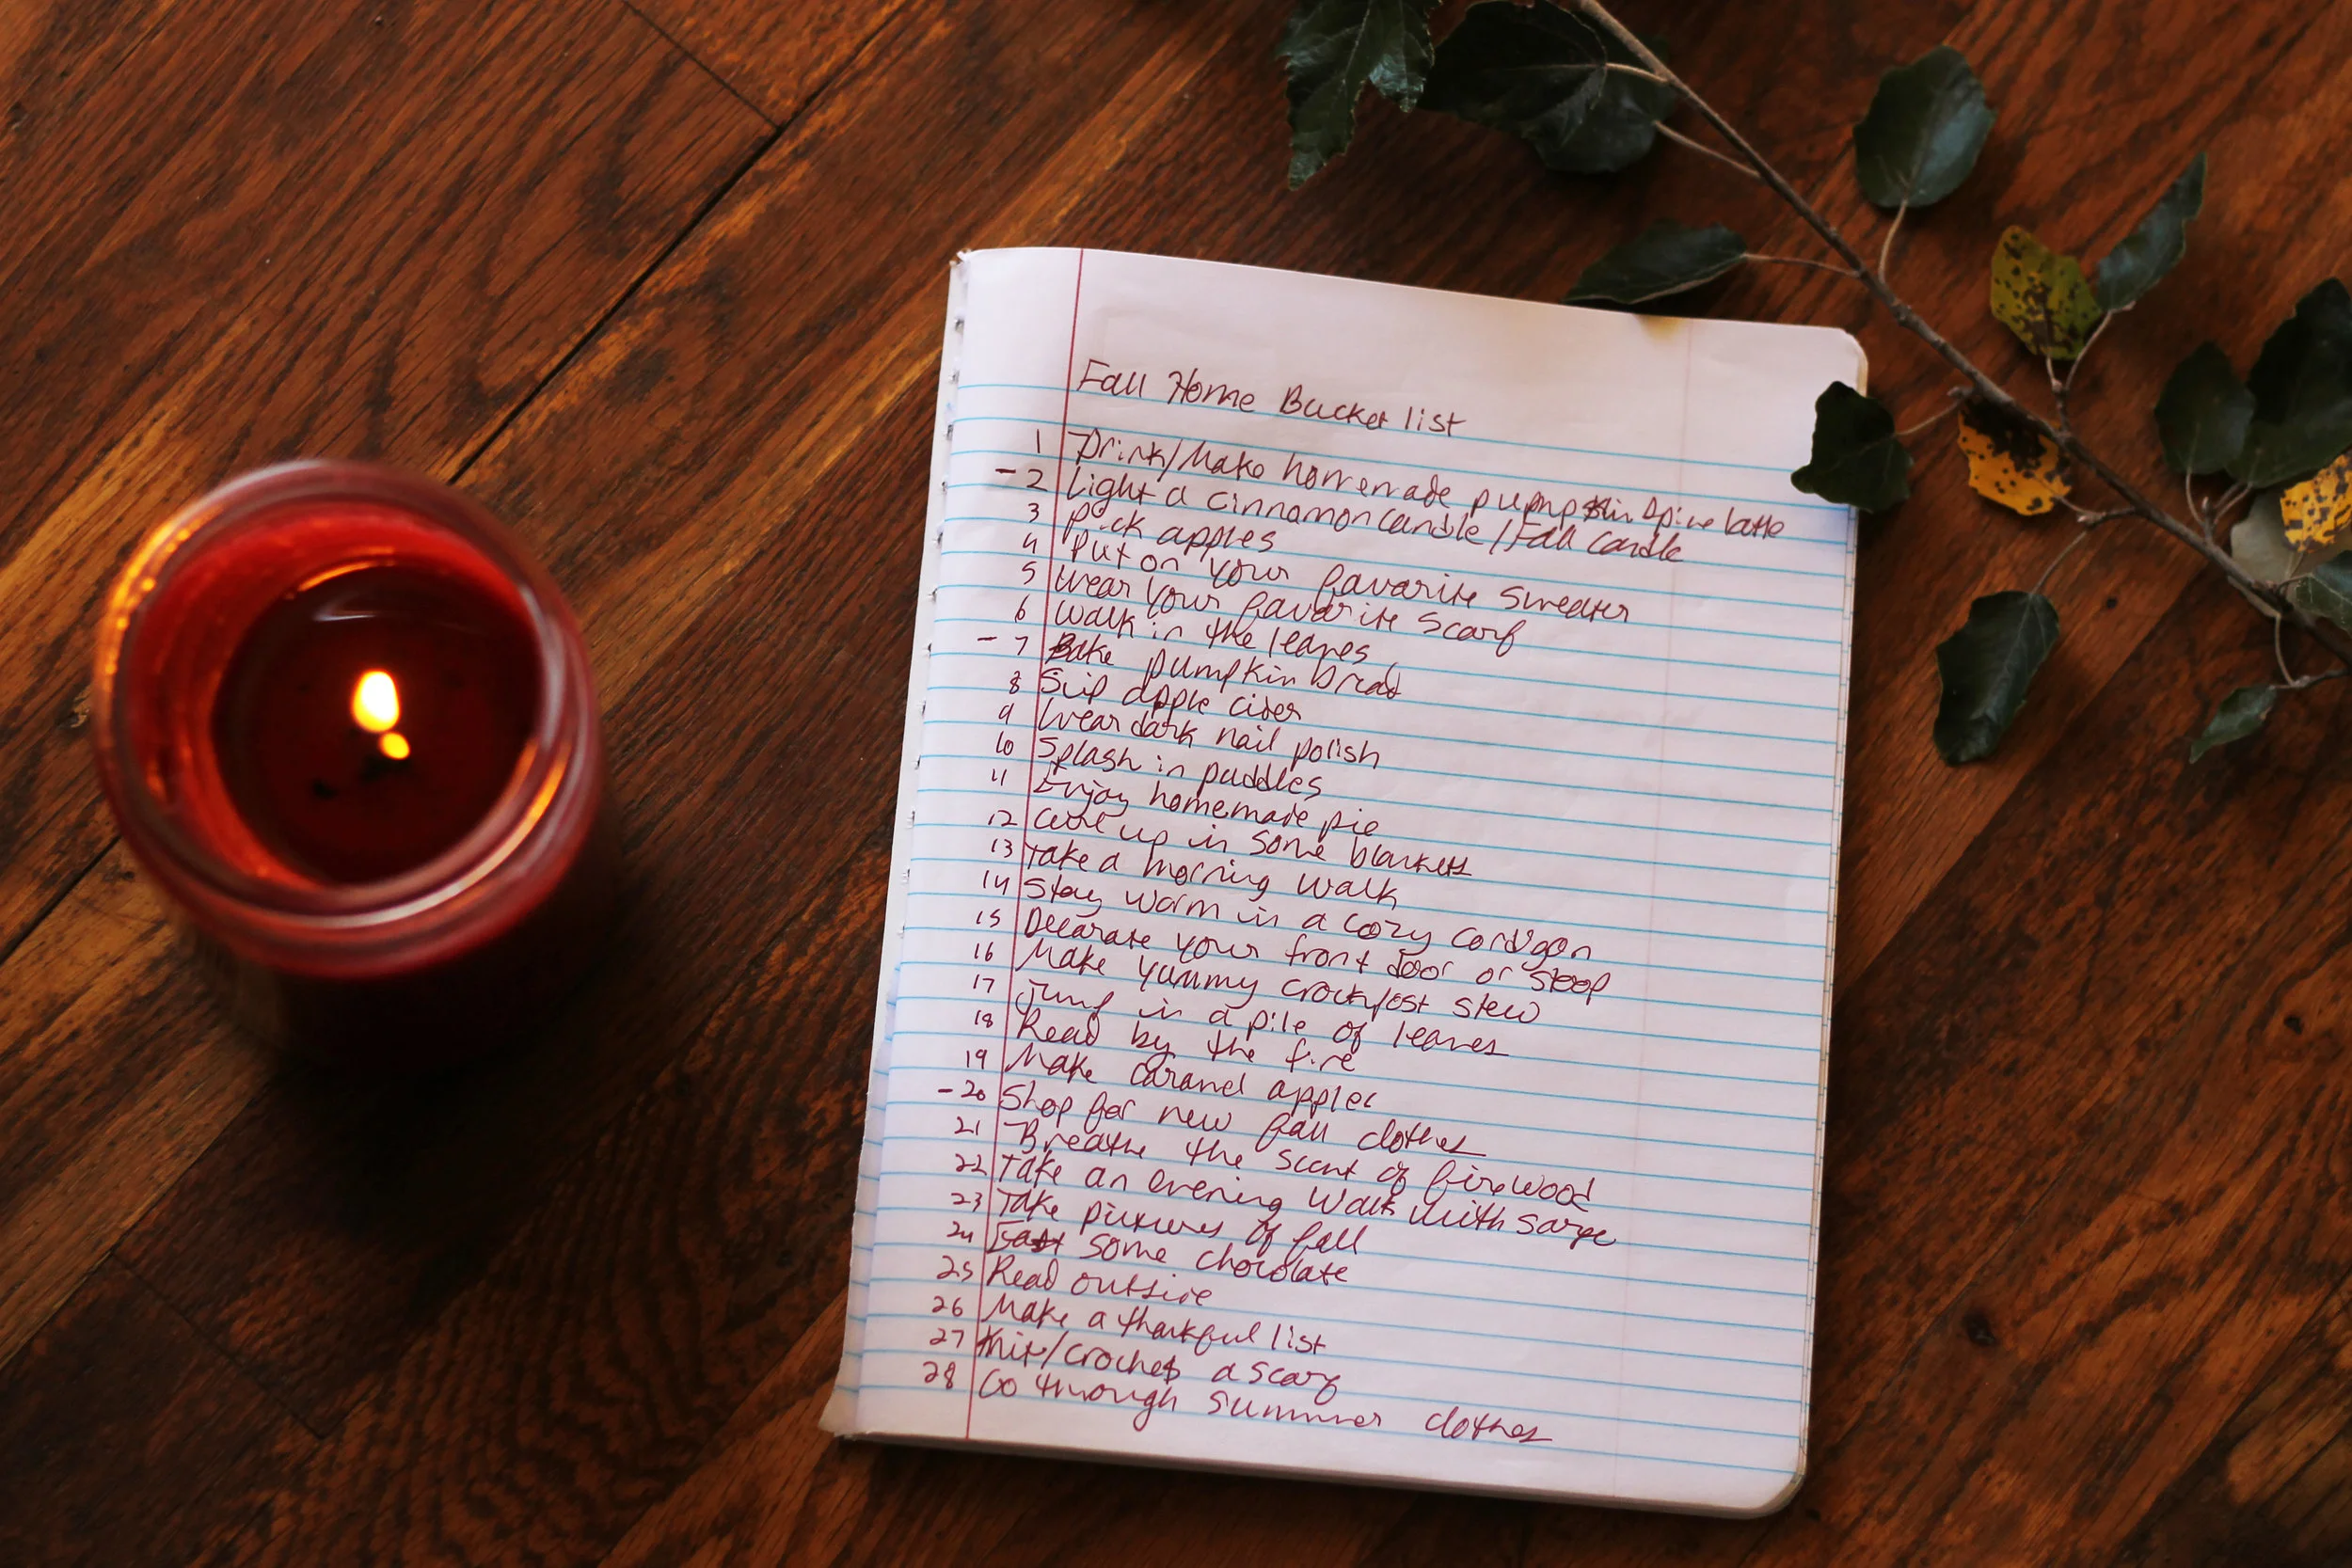 Fall Home Bucket list
1 Drink/Make homemade pupmpkin Spice latte
- 2 Light a cinnamon candle/Fall candle
3 Pick apples
4 Put on your favorite sweater
5 Wear your favorite scarf
6 Walk in the leaves
- 7 Bake pumpkin bread
8 Sip apple cider
9 Wear dark nail polish
10 Splash in puddles
11 Enjoy homemade pie
12 up in some blankets
13 Take a morning walk
14 Stay warm in a cozy cardigan
15 Decorate your front door or stoop
16 Make yummy crockpost stew
17 Jump in a pile of leaves
18 Read by the fire
19 Make caramel apples
- 20 Shop for new fall clothes
21 Breathe the scent of firewood
22 Take an evening walk with Sarge
23 Take pictures of fall
24 some chocolate
25 Read outside
26 Make a thankful list
27 Knit/crochet a scarf
28 Go through summer clothes